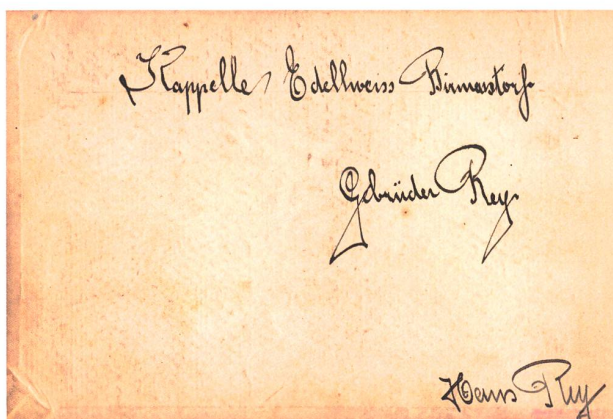 Kappelle Edellweiss Birmasstorf
Gebrüder Rey
Hans Rey